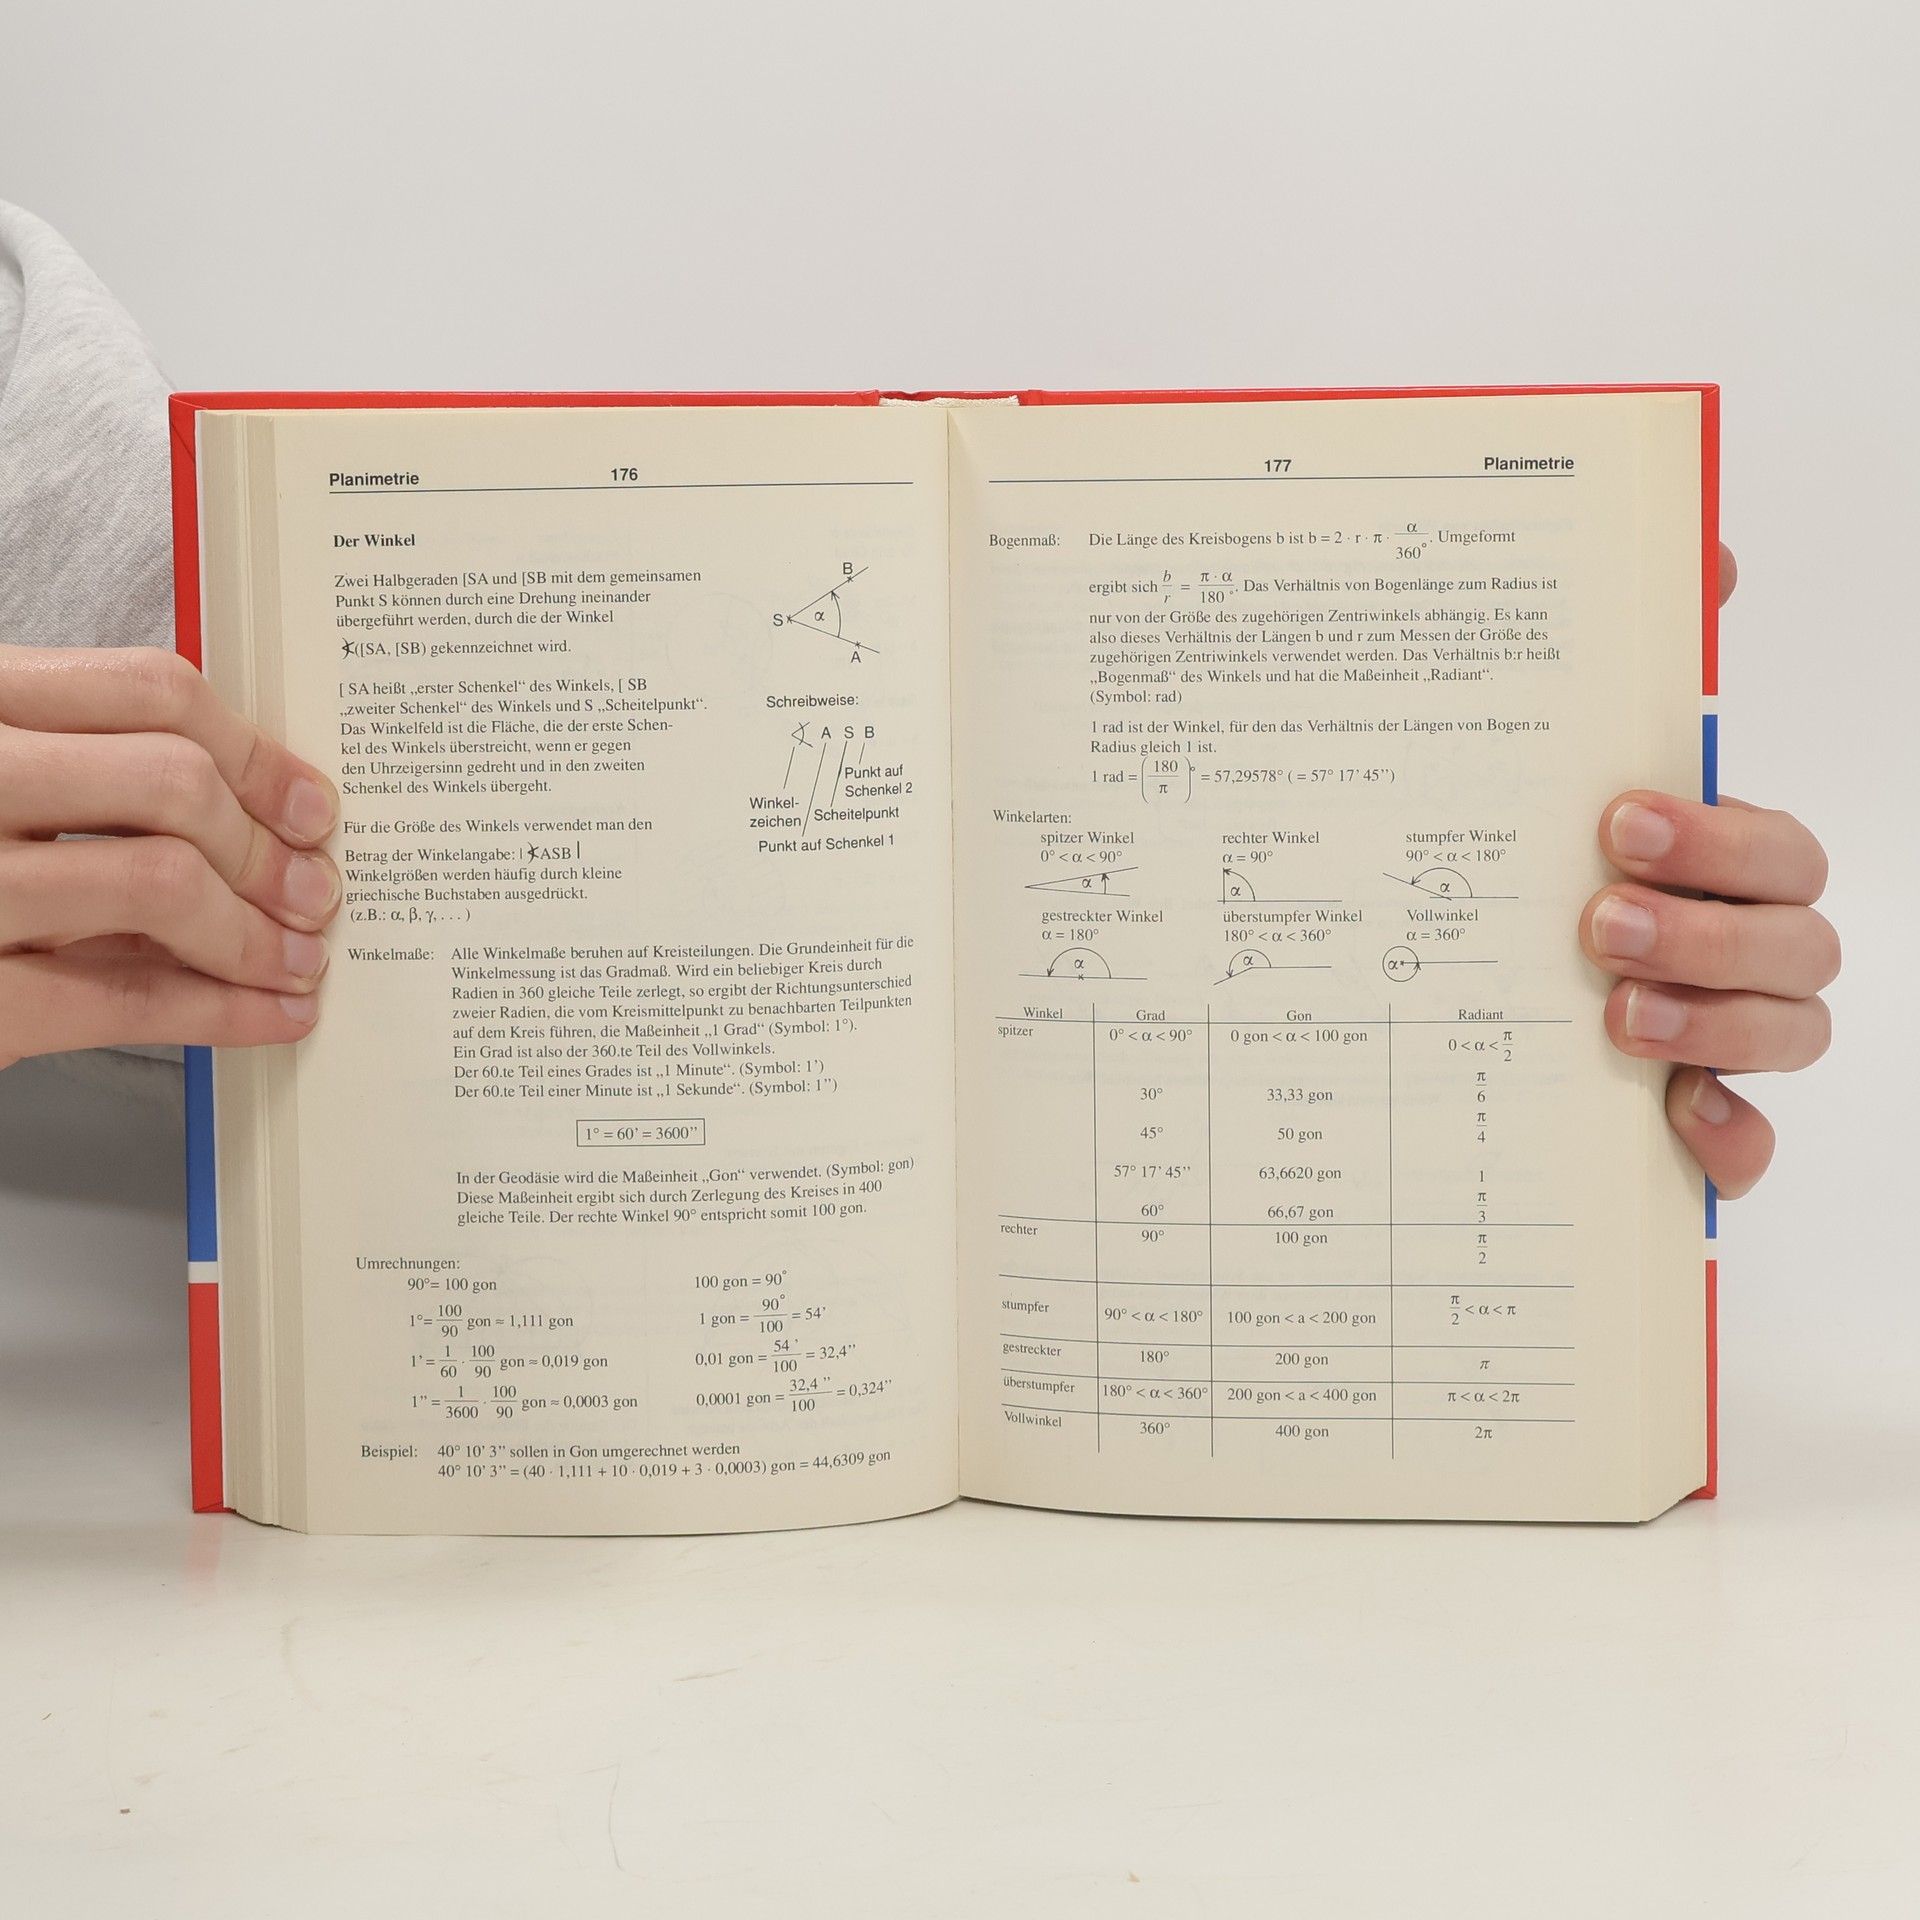 Planimetrie 176
Der Winkel
Zwei Halbgeraden [SA und [SB mit dem gemeinsamen
Punkt S können durch eine Drehung ineinander
übergeführt werden, durch die der Winkel
∢([SA, [SB) gekennzeichnet wird.
B
S α
A
[ SA heißt „erster Schenkel“ des Winkels, [ SB
„zweiter Schenkel“ des Winkels und S „Scheitelpunkt“.
Das Winkelfeld ist die Fläche, die der erste Schen-
kel des Winkels überstreicht, wenn er gegen
den Uhrzeigersinn gedreht und in den zweiten
Schenkel des Winkels übergeht.
Schreibweise:
∢ A S B
Punkt auf
Schenkel 2
Winkel-
zeichen
Scheitelpunkt
Punkt auf Schenkel 1
Für die Größe des Winkels verwendet man den
Betrag der Winkelangabe: | ∢ASB |
Winkelgrößen werden häufig durch kleine
griechische Buchstaben ausgedrückt.
(z.B.: α, β, γ, . . . )
Winkelmaße: Alle Winkelmaße beruhen auf Kreisteilungen. Die Grundeinheit für die
Winkelmessung ist das Gradmaß. Wird ein beliebiger Kreis durch
Radien in 360 gleiche Teile zerlegt, so ergibt der Richtungsunterschied
zweier Radien, die vom Kreismittelpunkt zu benachbarten Teilpunkten
auf dem Kreis führen, die Maßeinheit „1 Grad“ (Symbol: 1°).
Ein Grad ist also der 360.te Teil des Vollwinkels.
Der 60.te Teil eines Grades ist „1 Minute“. (Symbol: 1’)
Der 60.te Teil einer Minute ist „1 Sekunde“. (Symbol: 1”)
1° = 60’ = 3600”
In der Geodäsie wird die Maßeinheit „Gon“ verwendet. (Symbol: gon)
Diese Maßeinheit ergibt sich durch Zerlegung des Kreises in 400
gleiche Teile. Der rechte Winkel 90° entspricht somit 100 gon.
Umrechnungen:
90°= 100 gon 100 gon = 90°
1°= 100/90 gon ≈ 1,111 gon 1 gon = 90°/100 = 54’
1’ = 1/60 · 100/90 gon ≈ 0,019 gon 0,01 gon = 54 ’/100 = 32,4”
1” = 1/3600 · 100/90 gon ≈ 0,0003 gon 0,0001 gon = 32,4 ”/100 = 0,324”
Beispiel: 40° 10’ 3” sollen in Gon umgerechnet werden
40° 10’ 3” = (40 · 1,111 + 10 · 0,019 + 3 · 0,0003) gon = 44,6309 gon
177 Planimetrie
Bogenmaß: Die Länge des Kreisbogens b ist b = 2 · r · π · α/360°. Umgeformt
ergibt sich b/r = π · α/180 °. Das Verhältnis von Bogenlänge zum Radius ist
nur von der Größe des zugehörigen Zentriwinkels abhängig. Es kann
also dieses Verhältnis der Längen b und r zum Messen der Größe des
zugehörigen Zentriwinkels verwendet werden. Das Verhältnis b:r heißt
„Bogenmaß“ des Winkels und hat die Maßeinheit „Radiant“.
(Symbol: rad)
1 rad ist der Winkel, für den das Verhältnis der Längen von Bogen zu
Radius gleich 1 ist.
1 rad = (180/π)° = 57,29578° ( = 57° 17’ 45”)
Winkelarten:
spitzer Winkel rechter Winkel stumpfer Winkel
0° < α < 90° α = 90° 90° < α < 180°
α α α
gestreckter Winkel überstumpfer Winkel Vollwinkel
α = 180° 180° < α < 360° α = 360°
α α α
Winkel Grad Gon Radiant
spitzer 0° < α < 90° 0 gon < α < 100 gon 0 < α < π/2
30° 33,33 gon π/6
45° 50 gon π/4
57° 17’ 45” 63,6620 gon 1
60° 66,67 gon π/3
rechter 90° 100 gon π/2
stumpfer 90° < α < 180° 100 gon < a < 200 gon π/2 < α < π
gestreckter 180° 200 gon π
überstumpfer 180° < α < 360° 200 gon < a < 400 gon π < α < 2π
Vollwinkel 360° 400 gon 2π